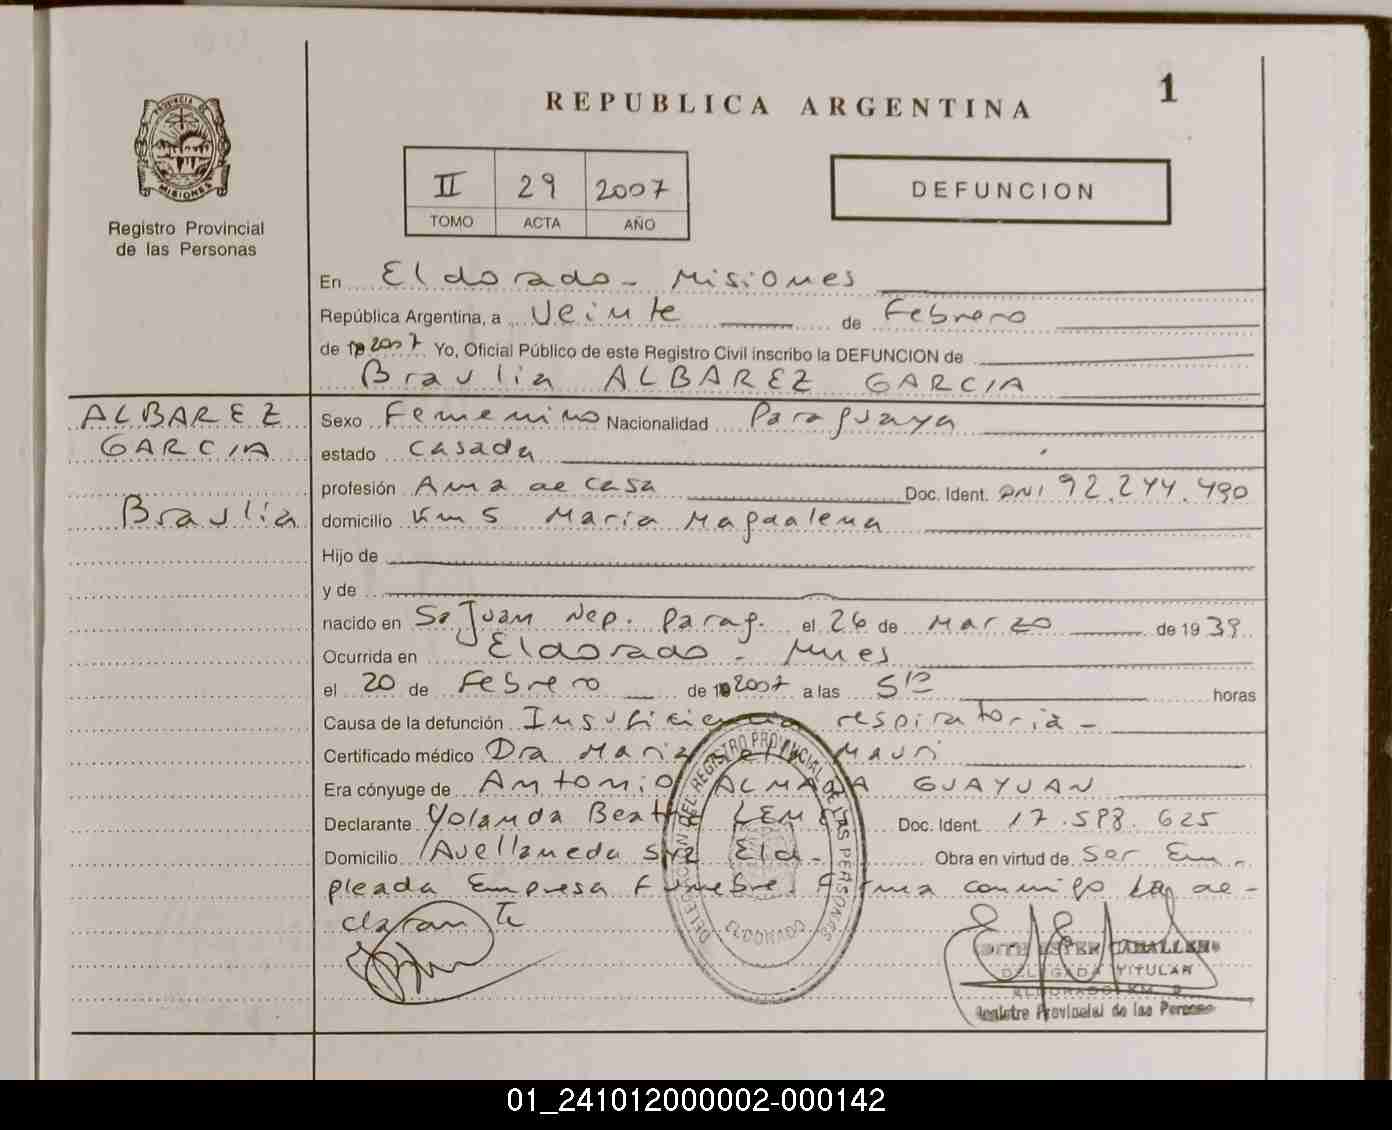 1
REPUBLICA ARGENTINA
PROVINCIA DE
MISIONES
Registro Provincial
de las Personas
II 29 2007
TOMO ACTA AÑO
DEFUNCION
En Eldorado - Misiones
República Argentina, a Veinte de Febrero
de 2007 Yo, Oficial Público de este Registro Civil inscribo la DEFUNCION de
Braulia ALBAREZ GARCIA
ALBAREZ
GARCIA
Braulia
Sexo Femenino Nacionalidad Paraguaya
estado Casada
profesión Ama de casa Doc. Ident. DNI 92.244.490
domicilio Km 5 Maria Magdalena
Hijo de
y de
nacido en Sn Juan Nep. Parag. el 26 de Marzo de 1939
Ocurrida en Eldorado - Mnes
el 20 de Febrero de 2007 a las 5 horas
Causa de la defunción Insuficiencia respiratoria -
Certificado médico Dra Maria Mauri
Era cónyuge de Antonio ALMADA GUAYUAN
Declarante Yolanda Beatriz Doc. Ident. 17.598.625
Domicilio Avellaneda s/n Eld - Obra en virtud de Ser Em-
pleada Empresa Funebre. Firma conmigo la de-
clarante
DELEGACION DEL REGISTRO PROVINCIAL DE LAS PERSONAS
ELDORADO
EDITH ESTER CABALLERO
DELEGADA TITULAR
ELDORADO KM. 9
Registro Provincial de las Personas
01_241012000002-000142